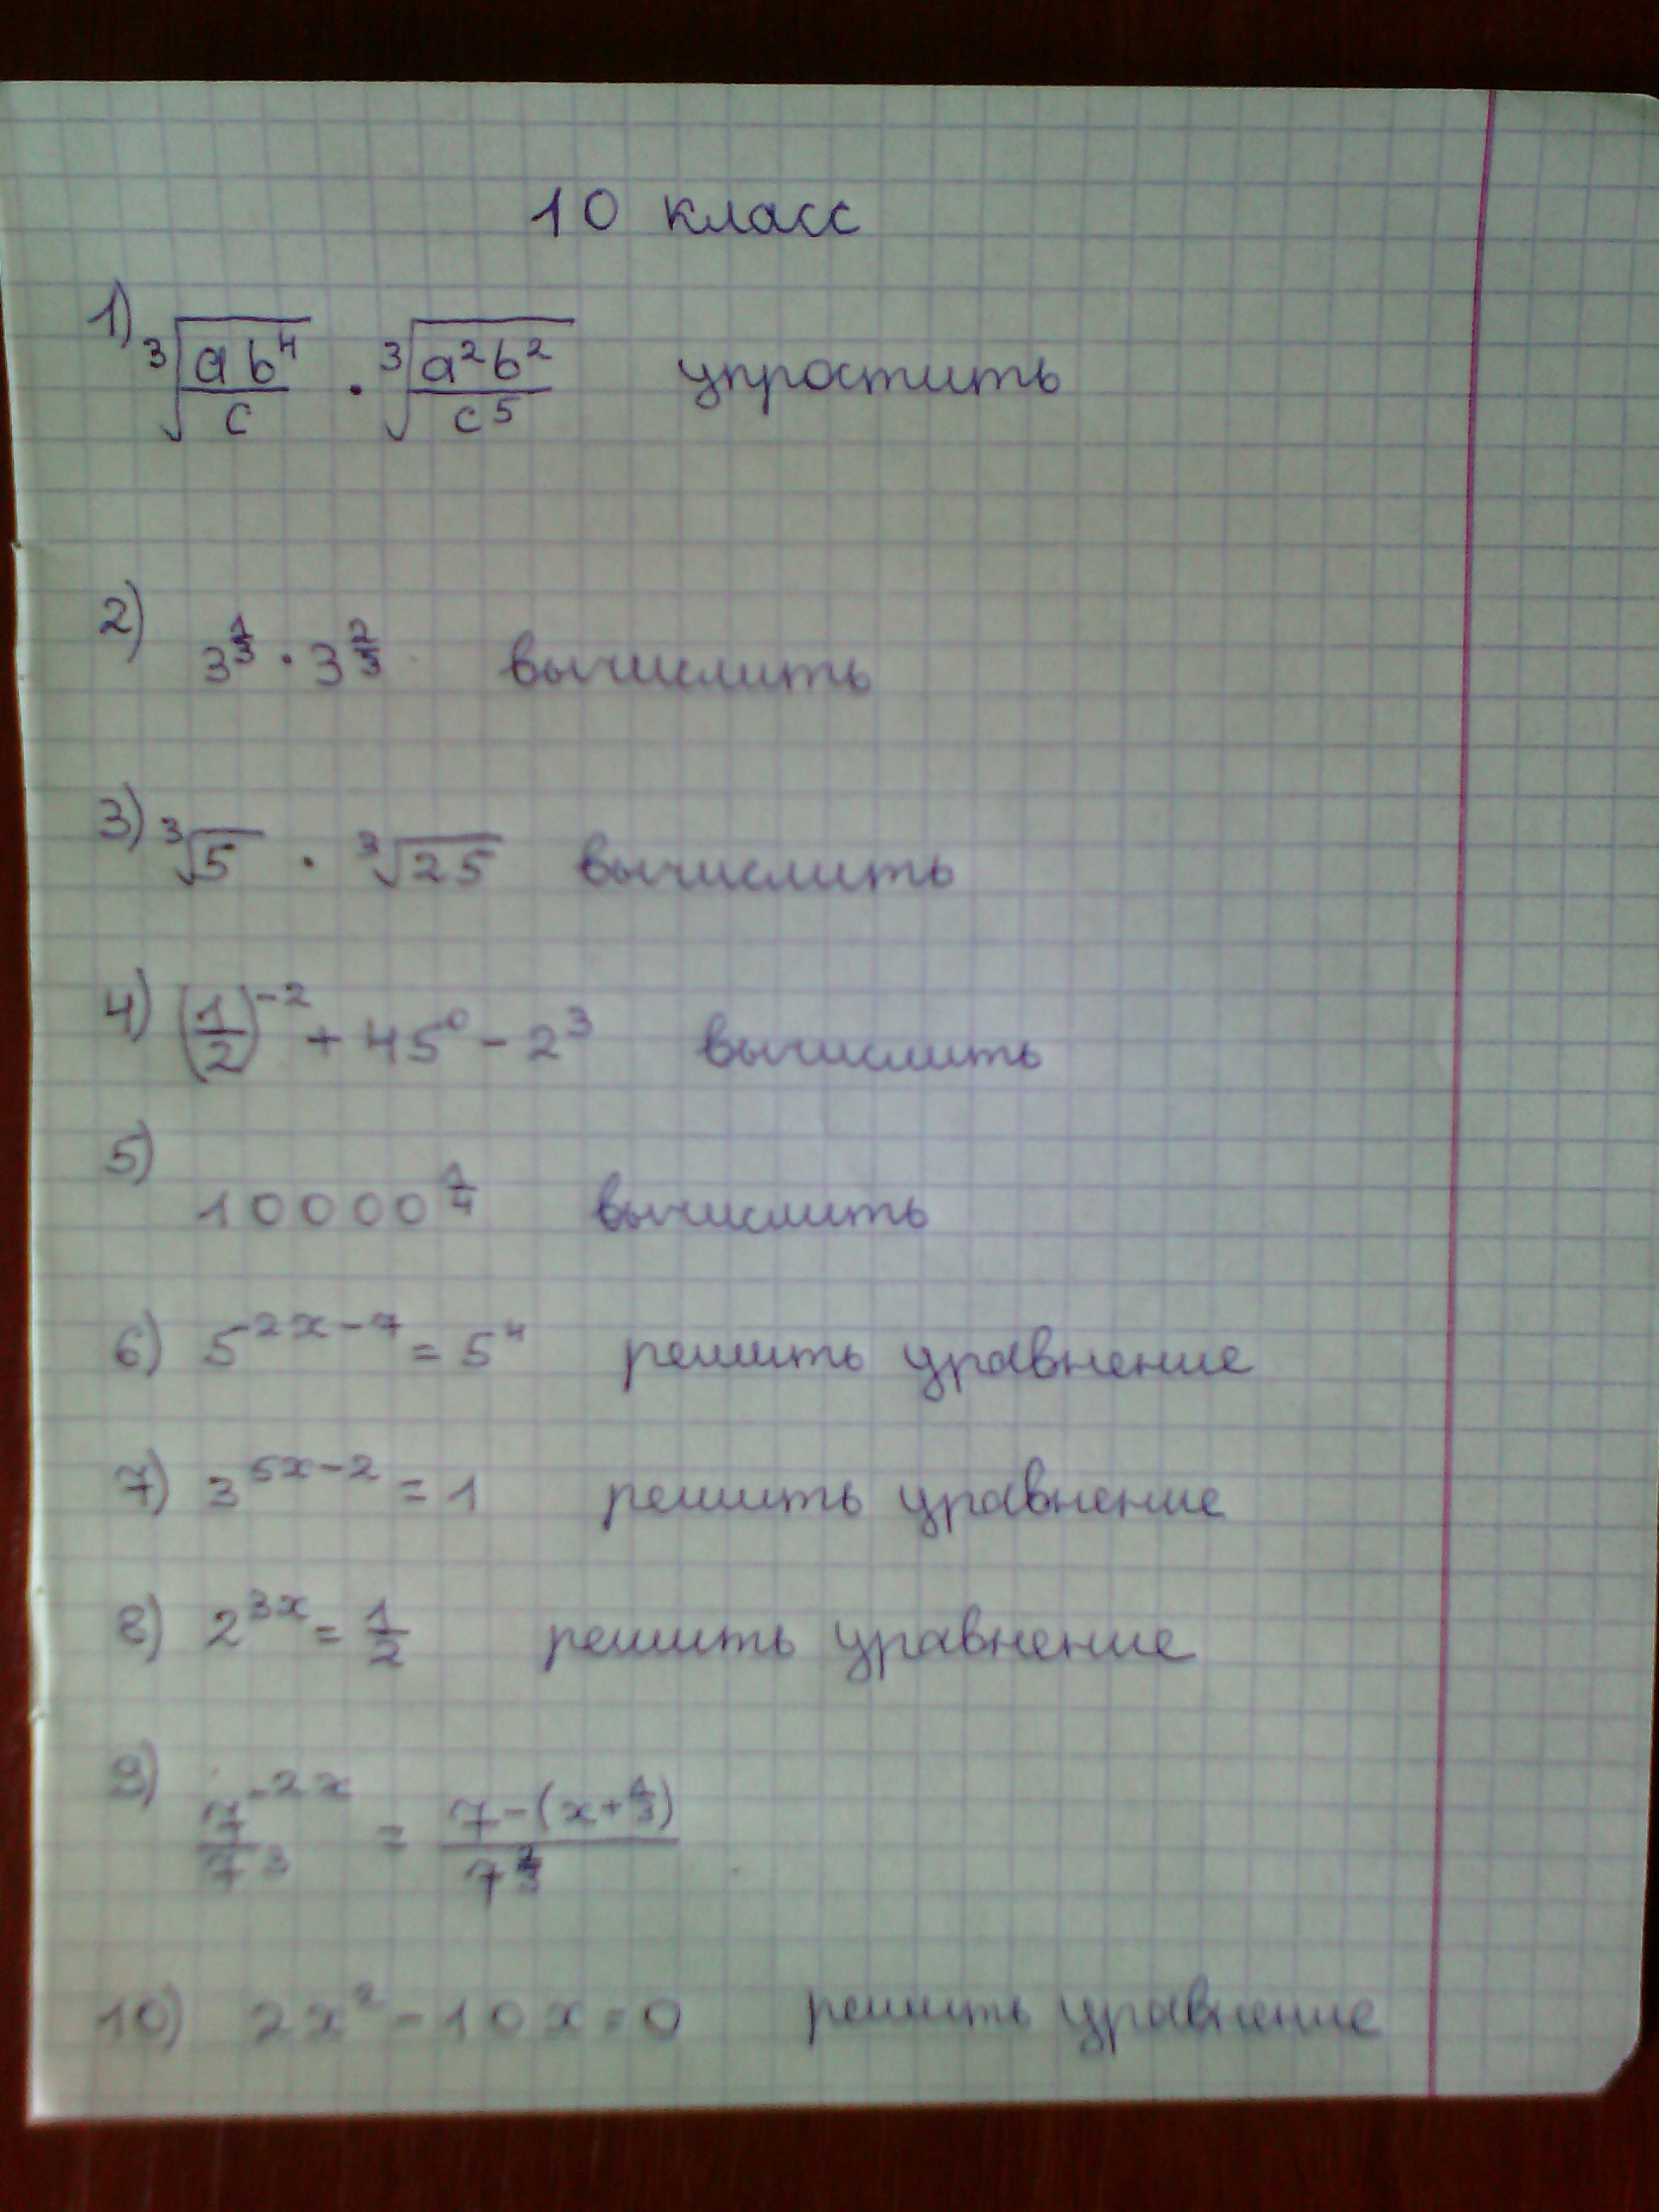 10 класс
1) ∛(ab⁴/c) · ∛(a²b²/c⁵) упростить
2) 3^(1/3) · 3^(2/3) вычислить
3) ∛5 · ∛25 вычислить
4) (1/2)^(-2) + 45⁰ - 2³ вычислить
5) 10000^(1/4) вычислить
6) 5^(2x-7) = 5⁴ решить уравнение
7) 3^(5x-2) = 1 решить уравнение
8) 2^(3x) = 1/2 решить уравнение
9) 7^(-2x)/7³ = 7^(-(x+1/3))/7^(2/3)
10) 2x² - 10x = 0 решить уравнение